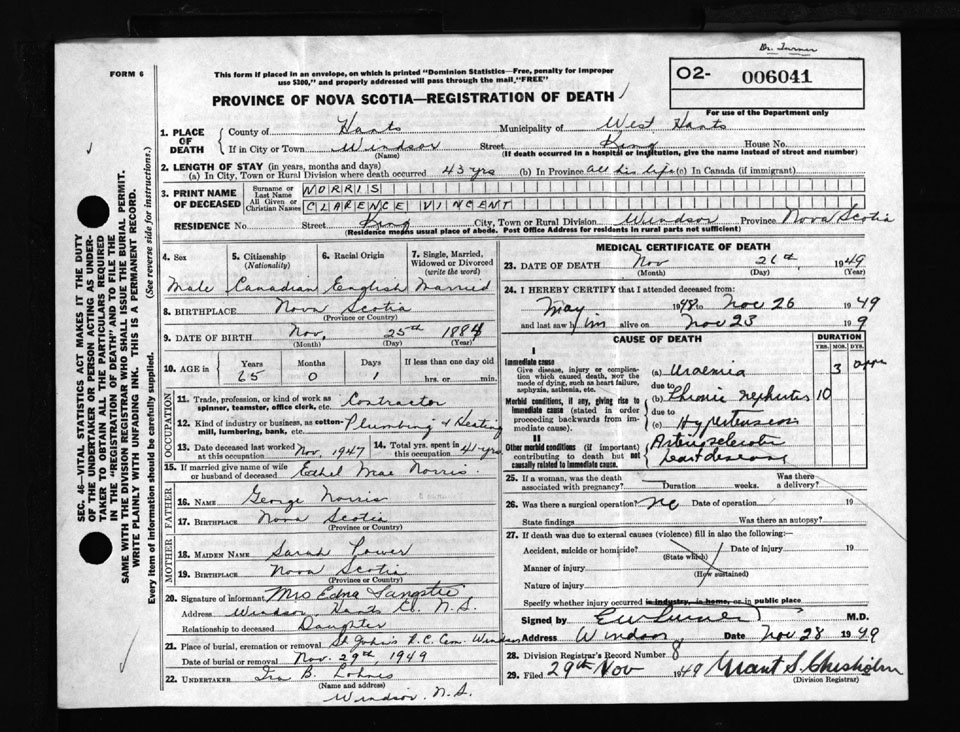 Dr. Turner
FORM 6
This form if placed in an envelope, on which is printed "Dominion Statistics—Free, penalty for improper
use $300," and properly addressed will pass through the mail "FREE"
O2- 006041
PROVINCE OF NOVA SCOTIA—REGISTRATION OF DEATH
For use of the Department only
1. PLACE OF DEATH
County of Hants Municipality of West Hants
If in City or Town Windsor Street King House No.
(Name) (If death occurred in a hospital or institution, give the name instead of street and number)
2. LENGTH OF STAY (in years, months and days)
(a) In City, Town or Rural Division where death occurred 43 yrs (b) In Province all his life (c) In Canada (if immigrant)
3. PRINT NAME OF DECEASED
Surname or Last Name NORRIS
All Given or Christian Names CLARENCE VINCENT
RESIDENCE No. Street King City, Town or Rural Division Windsor Province Nova Scotia
(Residence means usual place of abode. Post Office Address for Residents in rural parts not sufficient)
4. Sex 5. Citizenship (Nationality) 6. Racial Origin 7. Single, Married, Widowed or Divorced (write the word)
Male Canadian English Married
8. BIRTHPLACE Nova Scotia
(Province or Country)
9. DATE OF BIRTH Nov. 25th 1884
(Month) (Day) (Year)
10. AGE in Years Months Days If less than one day old
65 0 1 hrs. or min.
OCCUPATION
11. Trade, profession, or kind of work as spinner, teamster, office clerk, etc. Contractor
12. Kind of industry or business, as cotton-mill, lumbering, bank, etc. Plumbing & Heating
13. Date deceased last worked at this occupation Nov. 1947 14. Total yrs. spent in this occupation 41 yrs
15. If married give name of wife or husband of deceased Ethel Mae Norris
FATHER
16. NAME George Norris
17. BIRTHPLACE Nova Scotia
(Province or Country)
MOTHER
18. MAIDEN NAME Sarah Power
19. BIRTHPLACE Nova Scotia
(Province or Country)
20. Signature of informant Mrs Edna Sangster
Address Windsor, Hants Co. N.S.
Relationship to deceased Daughter
21. Place of burial, cremation or removal St John's R.C. Cem. Windsor
Date of burial or removal Nov. 29th, 1949
22. UNDERTAKER Ira B. Lohnes
(Name and address)
Windsor, N.S.
MEDICAL CERTIFICATE OF DEATH
23. DATE OF DEATH Nov 26th, 1949
(Month) (Day) (Year)
24. I HEREBY CERTIFY that I attended deceased from:
May 1948 to Nov 26 1949
and last saw him alive on Nov 23 19 9
CAUSE OF DEATH
DURATION
YRS. MOS. DYS.
I
Immediate cause
Give disease, injury or complication which caused death, NOT the mode of dying, such as heart failure, asphyxia, asthenia, etc.
(a) Uraemia 3
due to
Morbid conditions, if any, giving rise to immediate cause (stated in order proceeding backwards from immediate cause).
(b) Chronic nephritis 10
due to
(c) Hypertension
II
Other morbid conditions (if important) contributing to death but not causally related to immediate cause.
Arteriosclerotic
heart disease
25. If a woman, was the death associated with pregnancy? Duration weeks. Was there a delivery?
26. Was there a surgical operation? no Date of operation 19
State findings Was there an autopsy?
27. If death was due to external causes (violence) fill in also the following:—
Accident, suicide or homicide? Date of injury 19
(State which)
Manner of injury
(How sustained)
Nature of injury
Specify whether injury occurred in industry, in home, or in public place
Signed by E W Turner M.D.
Address Windsor Date Nov 28 1949
28. Division Registrar's Record Number 8
29. Filed 29th Nov 1949 Grant S. Chisholm
(Division Registrar)
SEC. 46—VITAL STATISTICS ACT MAKES IT THE DUTY
OF THE UNDERTAKER OR PERSON ACTING AS UNDER-
TAKER TO OBTAIN ALL THE PARTICULARS REQUIRED
IN THE "REGISTRATION OF DEATH" AND TO FILE THE
SAME WITH THE DIVISION REGISTRAR WHO SHALL ISSUE THE BURIAL PERMIT.
WRITE PLAINLY WITH UNFADING INK. THIS IS A PERMANENT RECORD.
Every item of information should be carefully supplied. (See reverse side for instructions.)